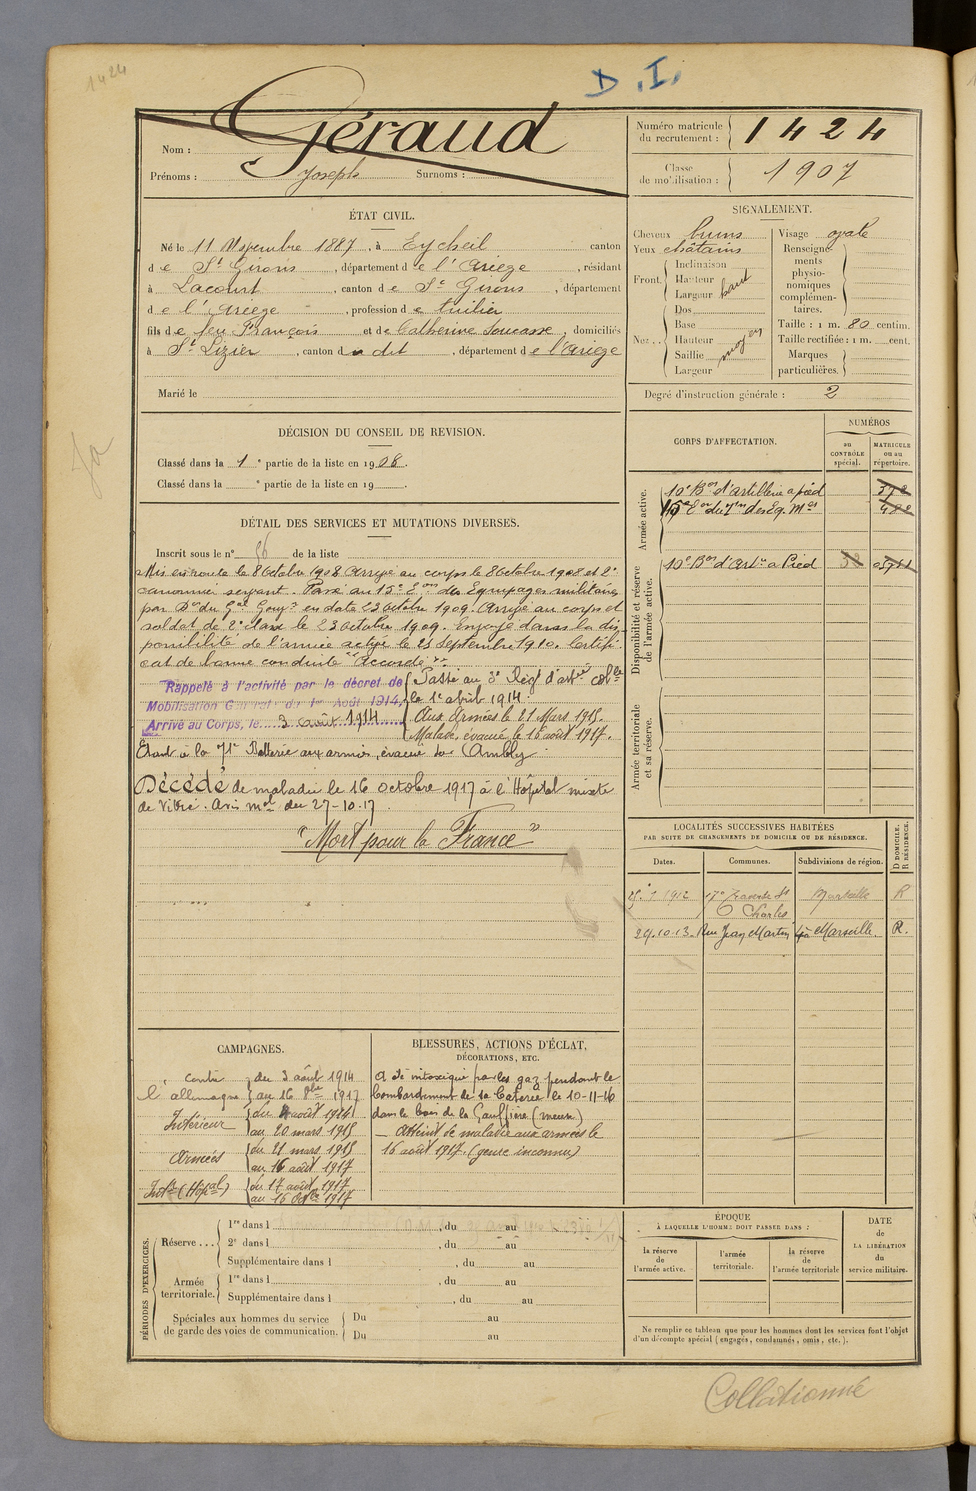 1424
D. I.
Nom : Géraud
Prénoms : Joseph Surnoms :
Numéro matricule du recrutement : 1424
Classe de mobilisation : 1907
ÉTAT CIVIL.
Né le 11 Novembre 1887, à Eycheil canton
de St Girons, département de l'Ariège, résidant
à Lacourt, canton de St Girons, département
de l'Ariège, profession de tuilier
fils de feu François et de Catherine Soucasse, domiciliés
à St Lizier, canton du dit, département de l'Ariège
Marié le
SIGNALEMENT.
Cheveux bruns Visage ovale
Yeux châtains
Front. Inclinaison Hauteur Largeur haut
Nez .. Dos Base Hauteur Saillie Largeur moyen
Renseignements physionomiques complémentaires.
Taille : 1 m. 80 centim.
Taille rectifiée : 1 m. cent.
Marques particulières.
Degré d'instruction générale : 2
DÉCISION DU CONSEIL DE REVISION.
Classé dans la 1e partie de la liste en 1908.
Classé dans la e partie de la liste en 19
Ja
DÉTAIL DES SERVICES ET MUTATIONS DIVERSES.
Inscrit sous le n° 56 de la liste
Mis en route le 8 Octobre 1908 Arrivé au corps le 8 Octobre 1908 et 2e
canonnier servant. Passé au 15e Eon des Equipages militaires
par Don du Gal Gouvr en date 23 octobre 1909. Arrivé au corps et
soldat de 2e classe le 23 Octobre 1909. Envoyé dans la dis-
ponibilité de l'armée active le 25 Septembre 1910. Certifi-
cat de bonne conduite "Accordé".
Rappelé à l'activité par le décret de
Mobilisation Générale du 1er Août 1914,
Arrivé au Corps, le 3 août 1914
Passé au 3e Régt d'artie colle
le 1er avril 1914.
Aux Armées le 21 Mars 1915.
Malade, évacué le 16 août 1917.
Etant à la 71e Batterie aux armées, évacué sur Ambly
Décédé de maladie le 16 octobre 1917 à l'Hôpital mixte
de Vitré. Avis mel du 27-10-17.
"Mort pour la France"
CORPS D'AFFECTATION.
NUMÉROS
au CONTRÔLE spécial.
MATRICULE ou au répertoire.
Armée active.
10e Bon d'artillerie à pied
15e Eon du Trn des Eq. Mres
Disponibilité et réserve de l'armée active.
10e Bon d'Artie à Pied
Armée territoriale et sa réserve.
LOCALITÉS SUCCESSIVES HABITÉES
PAR SUITE DE CHANGEMENTS DE DOMICILE OU DE RÉSIDENCE.
Dates. Communes. Subdivisions de région. D DOMICILE. R RÉSIDENCE.
1912 Traverse St Charles Marseille R
29.10.13. Rue Jean Martin Marseille R.
CAMPAGNES.
contre l'allemagne du 3 août 1914
au 16 8bre 1917
Intérieur du août 1914
au 20 mars 1915
Armées du 21 mars 1915
au 16 août 1917
Intr (Hôpal) du 17 août 1917
au 16 octbre 1917
BLESSURES, ACTIONS D'ÉCLAT,
DÉCORATIONS, ETC.
A été intoxiqué par les gaz pendant le
bombardement de la Batterie le 10-11-16
dans le bois de la (Meuse)
— Atteint de maladie aux armées le
16 août 1917. (genre inconnu)
PÉRIODES D'EXERCICES.
Réserve ... 1re dans l , du au
2e dans l , du au
Supplémentaire dans l , du au
Armée territoriale. 1re dans l , du au
Supplémentaire dans l , du au
Spéciales aux hommes du service de garde des voies de communication. Du au
Du au
ÉPOQUE
À LAQUELLE L'HOMME DOIT PASSER DANS :
la réserve de l'armée active.
l'armée territoriale.
la réserve de l'armée territoriale
DATE de LA LIBÉRATION du service militaire.
Ne remplir ce tableau que pour les hommes dont les services font l'objet
d'un décompte spécial (engagés, condamnés, omis, etc.).
Collationné